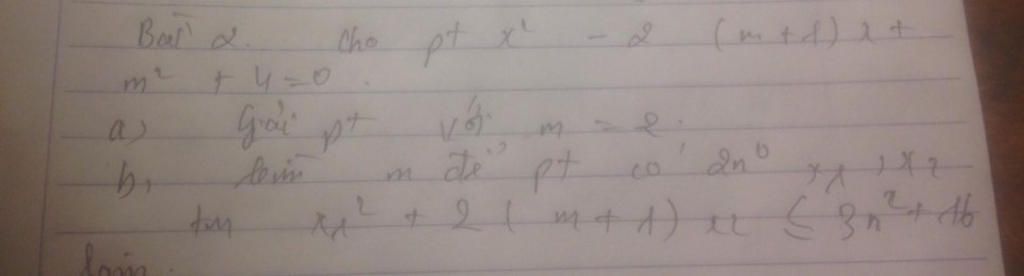 Bài 2. Cho pt x² - 2 (m+1)x +
m² + 4 = 0.
a) Giải pt với m = 2.
b, tìm m để pt có 2n⁰ x₁, x₂
tm x₁² + 2(m+1) x₂ ≤ 3m² + 16
làm.